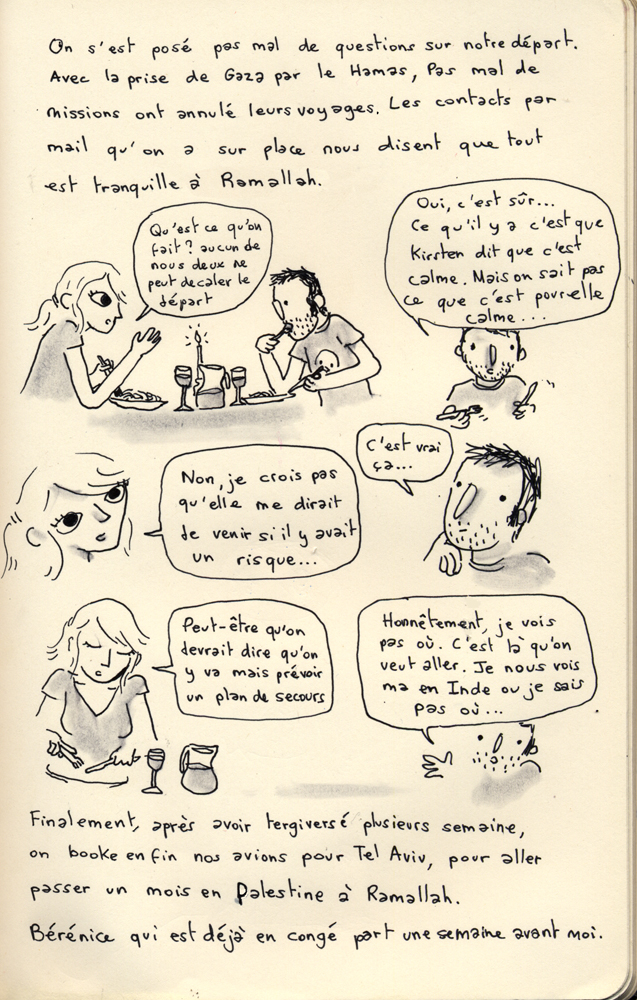 On s'est posé pas mal de questions sur notre départ.
Avec la prise de Gaza par le Hamas, Pas mal de
missions ont annulé leurs voyages. Les contacts par
mail qu'on a sur place nous disent que tout
est tranquille à Ramallah.
Qu'est ce qu'on
fait? aucun de
nous deux ne
peut décaler le
départ
Oui, c'est sûr...
Ce qu'il y a c'est que
Kirsten dit que c'est
calme. Mais on sait pas
ce que c'est pour elle
calme...
Non, je crois pas
qu'elle me dirait
de venir si il y avait
un risque...
C'est vrai
ça...
Peut-être qu'on
devrait dire qu'on
y va mais prévoir
un plan de secours
Honnêtement, je vois
pas où. C'est là qu'on
veut aller. Je nous vois
ma en Inde ou je sais
pas où...
Finalement, après avoir tergiversé plusieurs semaine,
on booke enfin nos avions pour Tel Aviv, pour aller
passer un mois en Palestine à Ramallah.
Bérénice qui est déjà en congé part une semaine avant moi.